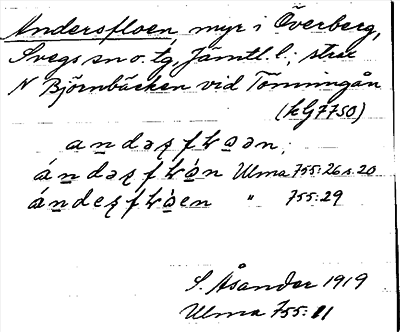 Andersfloen, myr i Överberg,
Svegs sn o. tg, Jämtl. l.; strax
N Björnbäcken vid Tönningån
(kG7750)
andəʂfɫoən;
ándəʂfɫòn Ulma 755:26 s. 20
ándeʂfɫòen " 755:29
S. Åsander 1919
Ulma 755:11